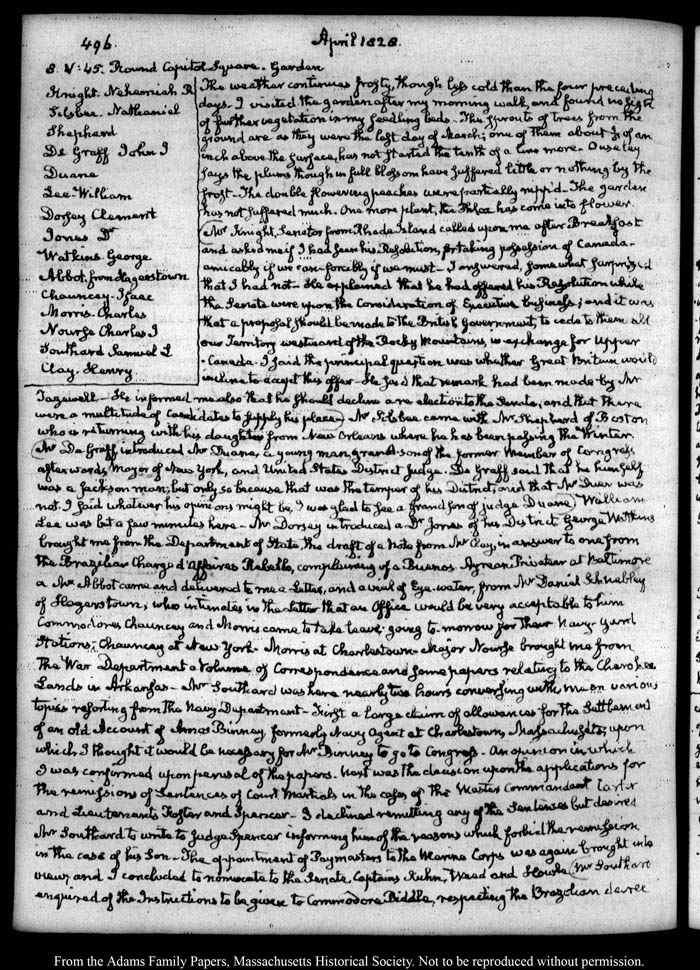 496.
April 1828.
8. V: 45. Round Capitol Square. Garden
Knight. Nehemiah R
Silsbee. Nathaniel
Shepherd
De Graff John I
Duane
Lee William
Dorsey Clement
Jones Dr
Watkins George
Abbot, from Hagerstown
Chauncey. Isaac
Morris. Charles
Nourse Charles J
Southard Samuel L
Clay. Henry
The weather continues frosty, though less cold than the four preceding
days. I visited the garden after my morning walk, and found no sight
of further vegetation in my seedling beds. The sprouts of trees from the
ground are as they were the last day of March; one of them about ¾ of an
inch above the surface, has not started the tenth of a line more. Ouseley
says the plums though in full blossom have suffered little or nothing by the
frost. The double flowering peaches were partially nipp'd. The garden
has not suffered much. One more plant, the Phlox has come into flower.
Mr Knight, Senator from Rhode Island called upon me after Breakfast
and asked me if I had seen his Resolution, for taking possession of Canada.
amicably if we can forcibly if we must. I answered, somewhat surprized
that I had not. He explained that he had offered his Resolution while
the Senate were upon the Consideration of Executive business; and it was
that a proposal should be made to the British Government, to cede to them all
our Territory westward of the Rocky Mountains, in exchange for Upper
Canada. I said the principal question was whether Great Britain would
incline to accept this offer. He said that remark had been made by Mr
Tazewell. He informed me also that he should decline a re-election to the Senate, and that there
were a multitude of candidates to supply his place. Mr Silsbee came with Mr Shepherd of Boston
who is returning with his daughter from New Orleans where he has been passing the Winter.
Mr De Graff introduced Mr Duane, a young man, grandson of the former Member of Congress
afterwards Mayor of New York, and United States District Judge. De Graff said that he himself
was a Jackson man, but only so because that was the temper of his District, and that Mr Duer was
not. I said whatever his opinions might be, I was glad to see a grandson of judge Duane. William
Lee was but a few minutes here. Mr Dorsey introduced a Dr Jones of his District. George Watkins
brought me from the Department of State the draft of a Note from Mr Clay, in answer to one from
the Brazilian Chargé d'Affaires Rebello, complaining of a Buenos Ayrean Privateer at Baltimore
a Mr Abbot came and delivered to me a Letter, and a vial of Eye-water, from Mr Daniel Schnebley
of Hagerstown, who intimates in the letter that an Office would be very acceptable to him
Commodores Chauncey and Morris came to take leave; going to-morrow for their Navy-Yard
Stations; Chauncey at New York. Morris at Charlestown. Major Nourse brought me from
the War Department a Volume of Correspondence and some papers relating to the Cherokee
Lands in Arkansas. Mr Southard was here nearly two hours conversing with me on various
topics resorting from the Navy Department. First a large claim of allowances for the Settlement
of an old Account of Amos Binney, formerly Navy Agent at Charlestown, Massachusetts; upon
which I thought it would be necessary for Mr Binney to go to Congress. An opinion in which
I was confirmed upon perusal of the papers. Next was the decision upon the applications for
the remissions of Sentences of Court Martials in the cases of the Master Commandant Carter
and Lieutenants Foster and Spencer. I declined remitting any of the Sentences but desired
Mr Southard to write to Judge Spencer informing him of the reasons which forbid the remission
in the case of his Son. The appointment of Paymasters to the Marine Corps was again brought into
view, and I concluded to nominate to the Senate, Captains Kuhn, Wead and Howle. Mr Southard
enquired of the Instructions to be given to Commodore Biddle, respecting the Brazilian decree
From the Adams Family Papers, Massachusetts Historical Society. Not to be reproduced without permission.